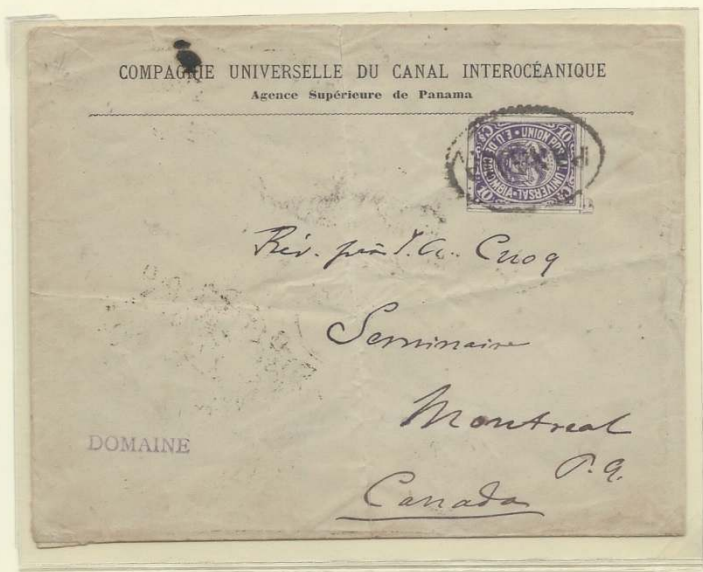 COMPAGNIE UNIVERSELLE DU CANAL INTEROCÉANIQUE
Agence Supérieure de Panama
UNION POSTAL UNIVERSAL · E.U. DE COLOMBIA · 10 Cs
Rév. père J. A. Cuoq
Seminaire
Montreal
P.Q.
Canada
DOMAINE